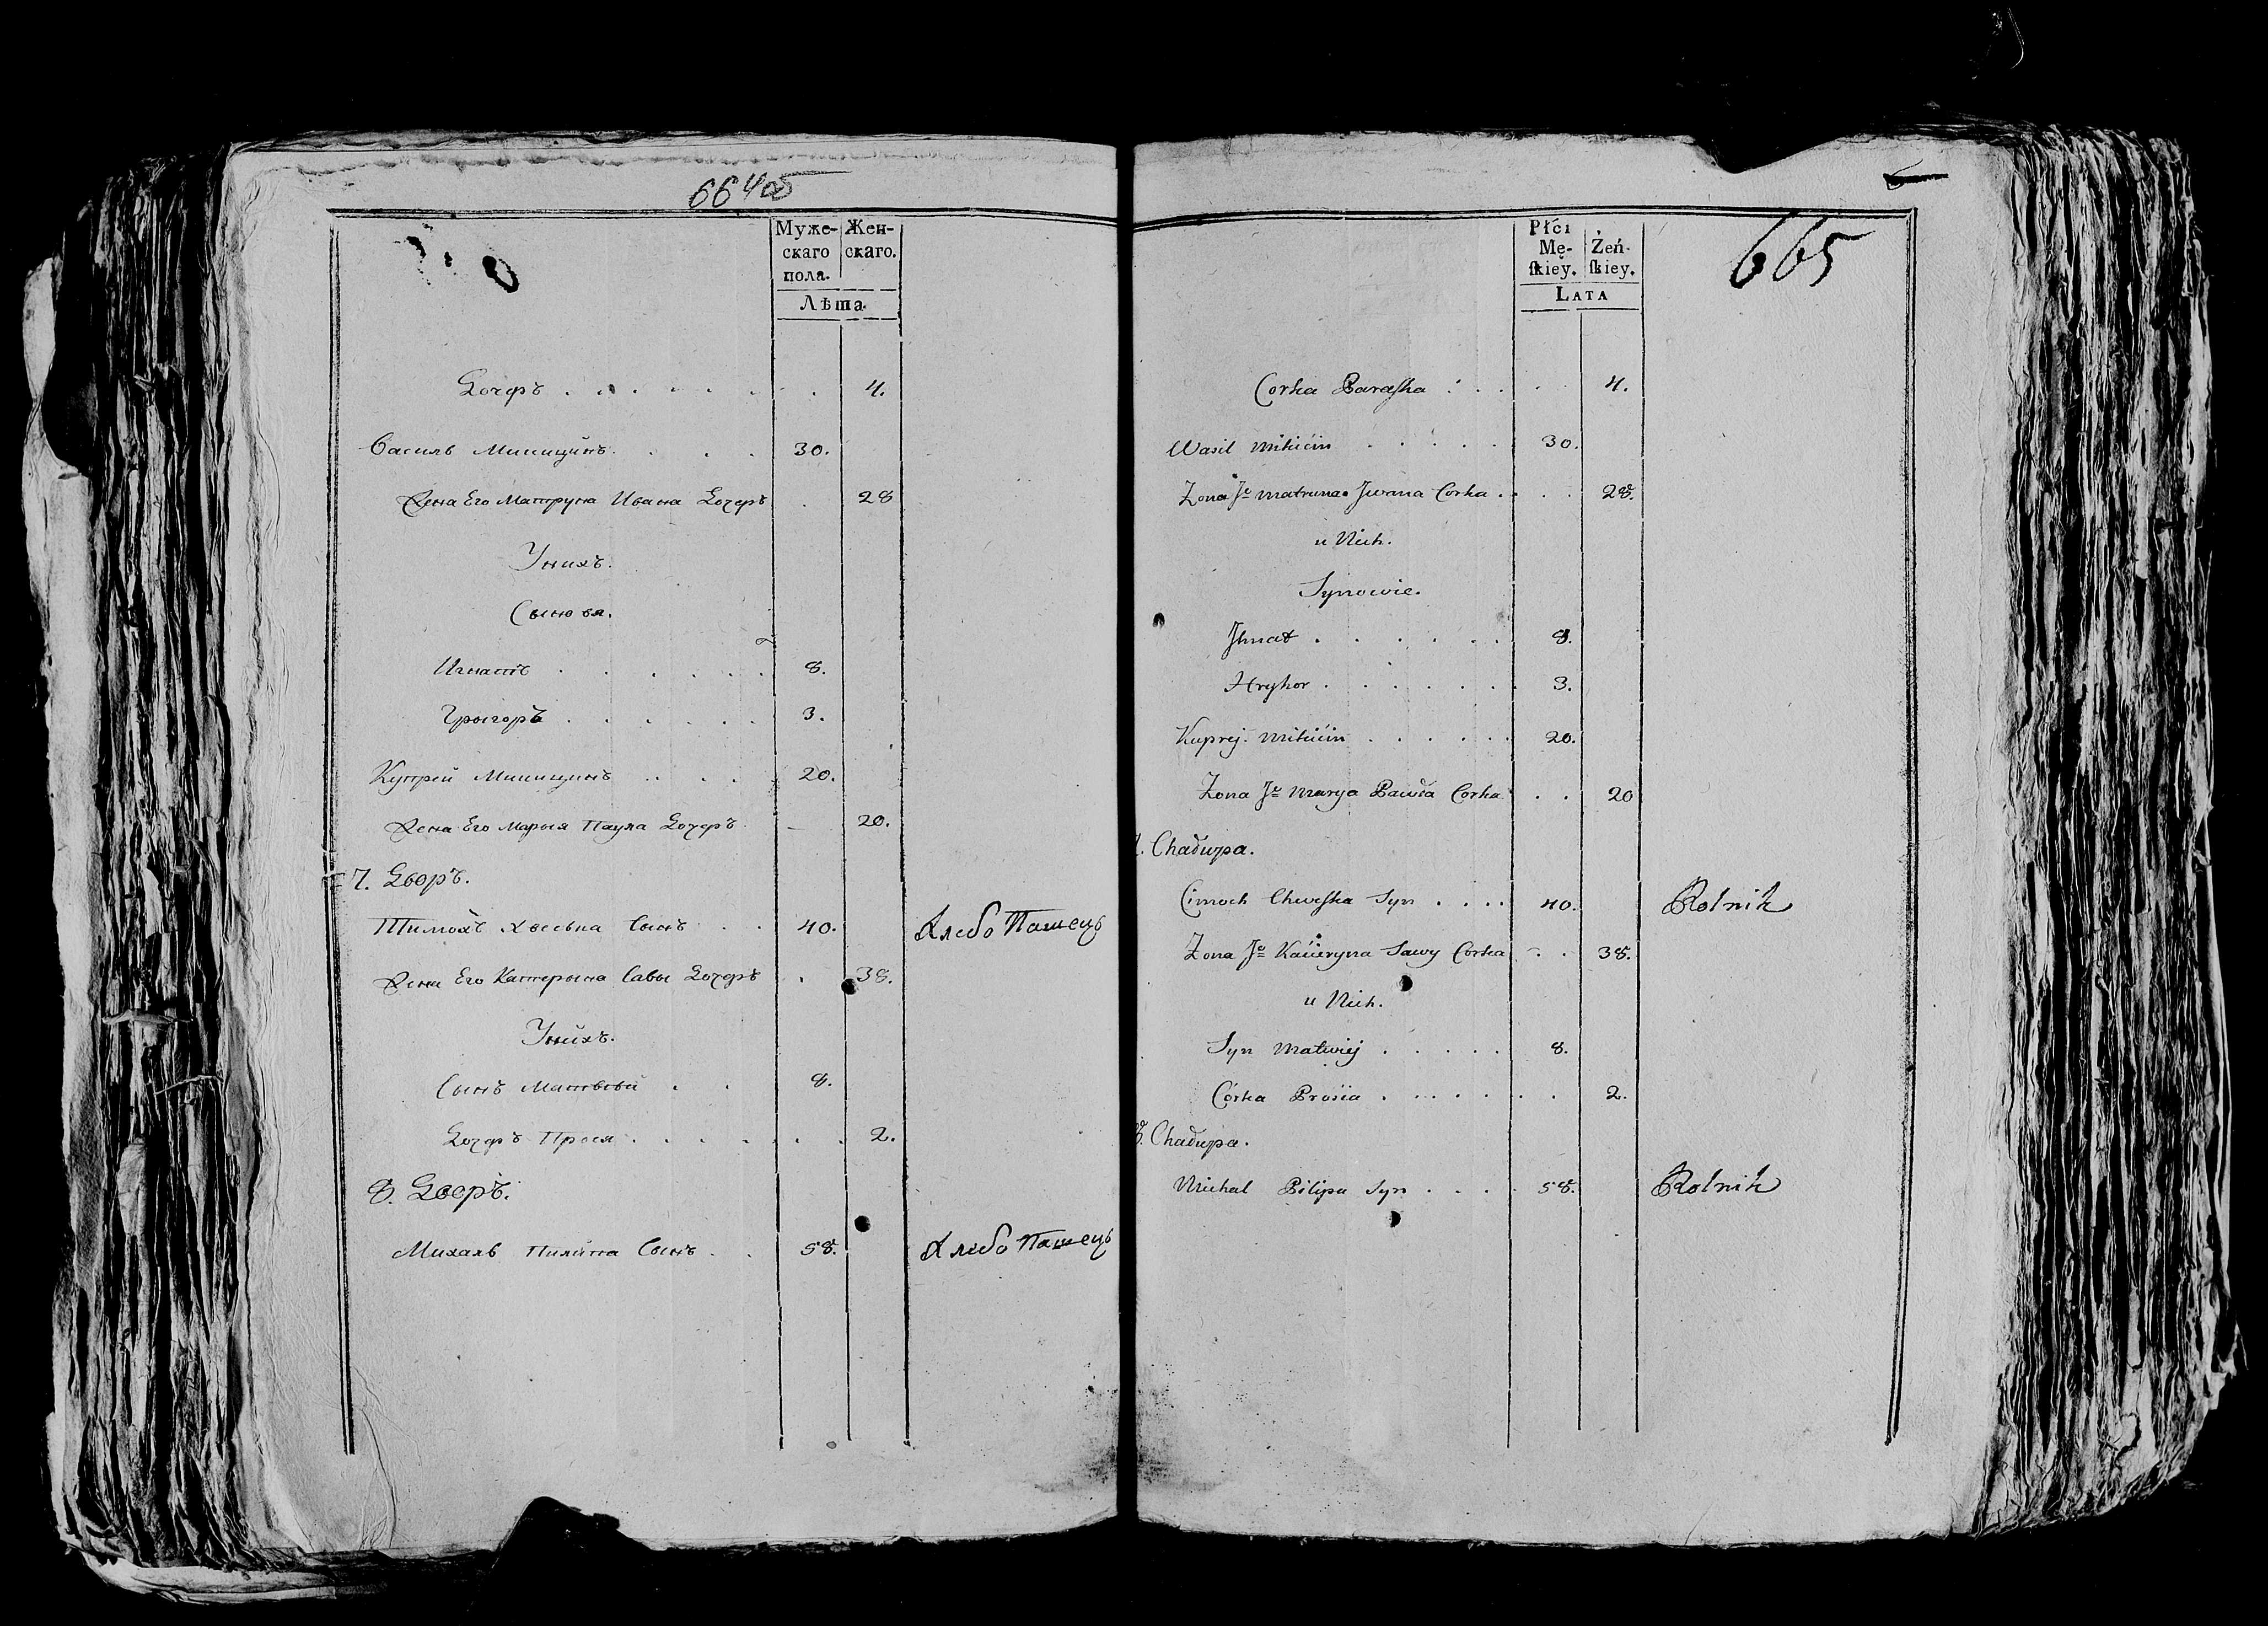 664об
Муже-
скаго
пола.
Жен-
скаго.
Лѣта.
Дочеръ 4.
Василь Микицинъ 30.
Жена Его Матруна Ивана Дочеръ 28
Унихъ.
Сыновя.
Игнатъ 8.
Грыгоръ 3.
Купрей Микицинъ 20.
Жена Его Марыя Паула Дочеръ 20.
7. Дворъ.
Тимохъ Хвеська Сынъ 40. Хлебо Пашець
Жена Его Катерына Савы Дочеръ 38.
Унихъ.
Сынъ Матвей 8.
Дочеръ Прося 2.
8. Дворъ.
Михаль Пилипа Сынъ 58. Хлебо Пашець
665
Płći
Mę-
ſkieỹ.
Żeń-
ſkiey.
LATA
Corka Paraſka 4.
Wasil Mikićin 30.
Zona Je Matruna Jwana Corka 28.
u Nich.
Synowie.
Jhnat 8.
Hryhor 3.
Kuprej Mikićin 20.
Zona Je Marya Pawła Corka 20
Chałupa.
Cimoch Chweſka Syn 40. Rolnik
Zona Je Kacieryna Sawy Corka 38.
u Nich.
Syn Matwiej 8.
Córka Prosia 2.
8. Chałupa.
Michal Pilipa Syn 58. Rolnik